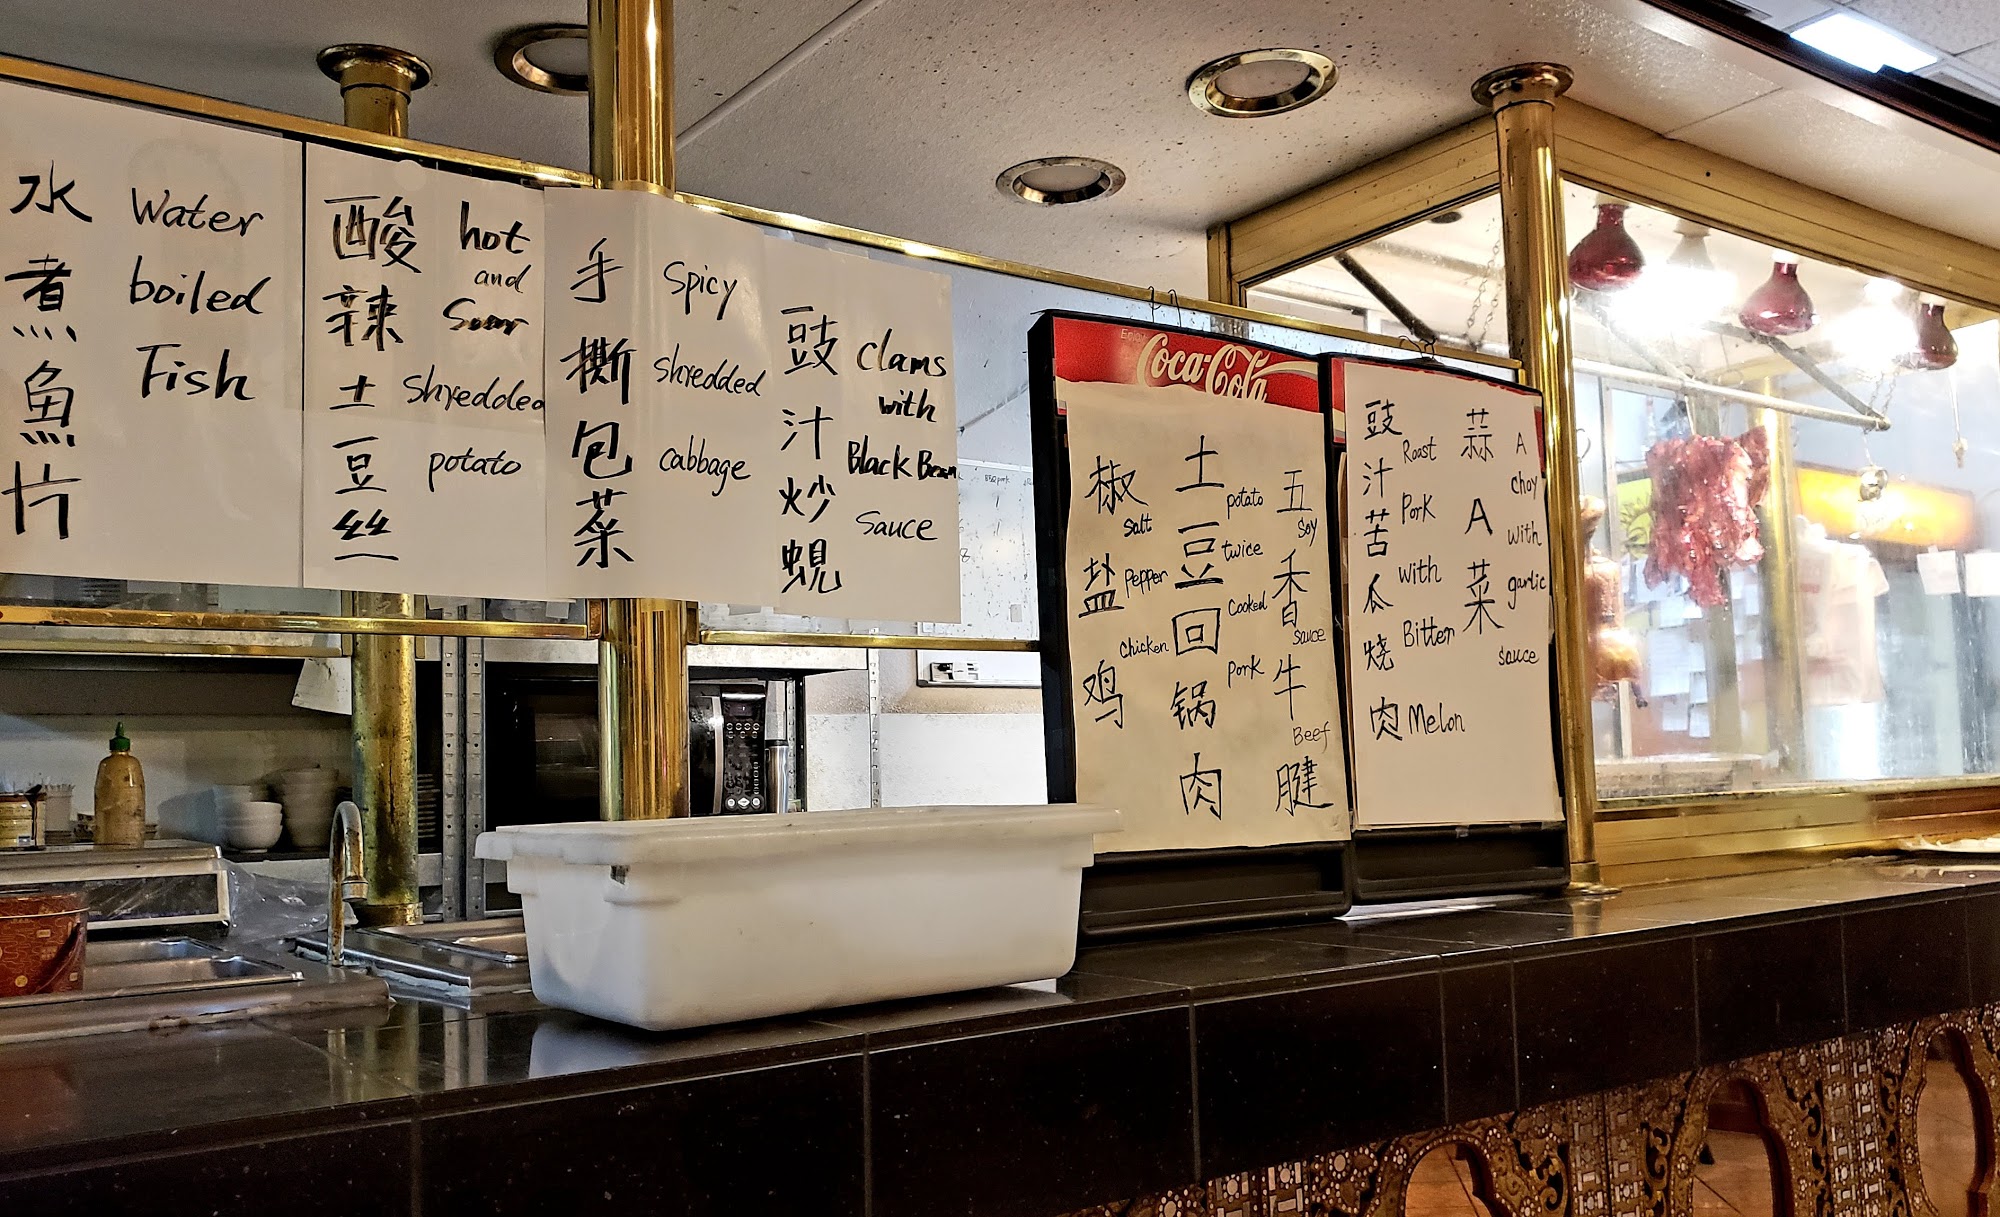 水煮魚片
Water
boiled
Fish
酸辣土豆丝
hot
and
Sour
shredded
potato
手撕包菜
Spicy
shredded
cabbage
豉汁炒蜆
Clams
with
Black Bean
Sauce
Enjoy
Coca-Cola
椒盐鸡
Salt
Pepper
Chicken
土豆回锅肉
potato
twice
Cooked
pork
五香牛腱
Soy
sauce
Beef
豉汁苦瓜烧肉
Roast
Pork
with
Bitter
Melon
蒜A菜
A
choy
with
garlic
sauce